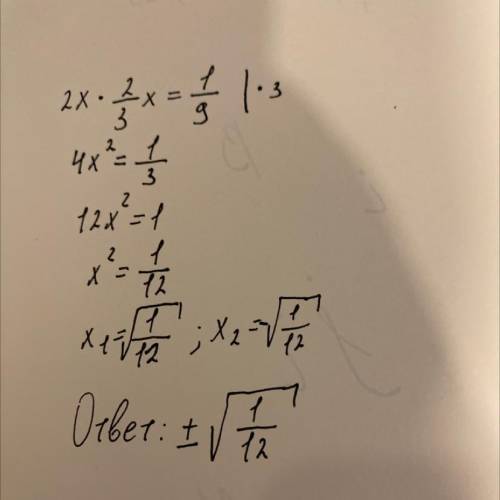 2x · 2/3 x = 1/9 | · 3
4x² = 1/3
12x² = 1
x² = 1/12
x₁ = √(1/12) ; x₂ = -√(1/12)
Ответ: ± √(1/12)